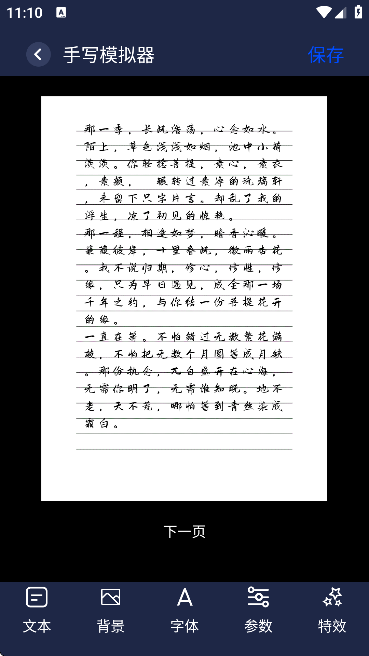 11:10
手写模拟器
保存
那一季，长风浩荡，心念如水。
陌上，草色浅浅如烟，池中小荷
淡淡。你轻捻菩提，素心，素衣
，素颜，　辗转过素净的流满轩
，未留下只字片言。却乱了我的
浮生，凉了初见的惊艳。
那一程，相逢如梦，暗香沁暖。
蒹葭彼岸，十里春风，微雨杏花
。我不说归期，修心，修性，修
缘，只为早日遇见，成全那一场
千年之约，与你结一份菩提花开
的缘。
一直在等。不怕错过无数繁花满
枝，不怕把无数个月圆等成月缺
。那份执念，兀自盛开在心海，
无需你明了，无需谁知晓。地不
老，天不荒，哪怕等到青丝染成
霜白。
下一页
文本
背景
字体
参数
特效